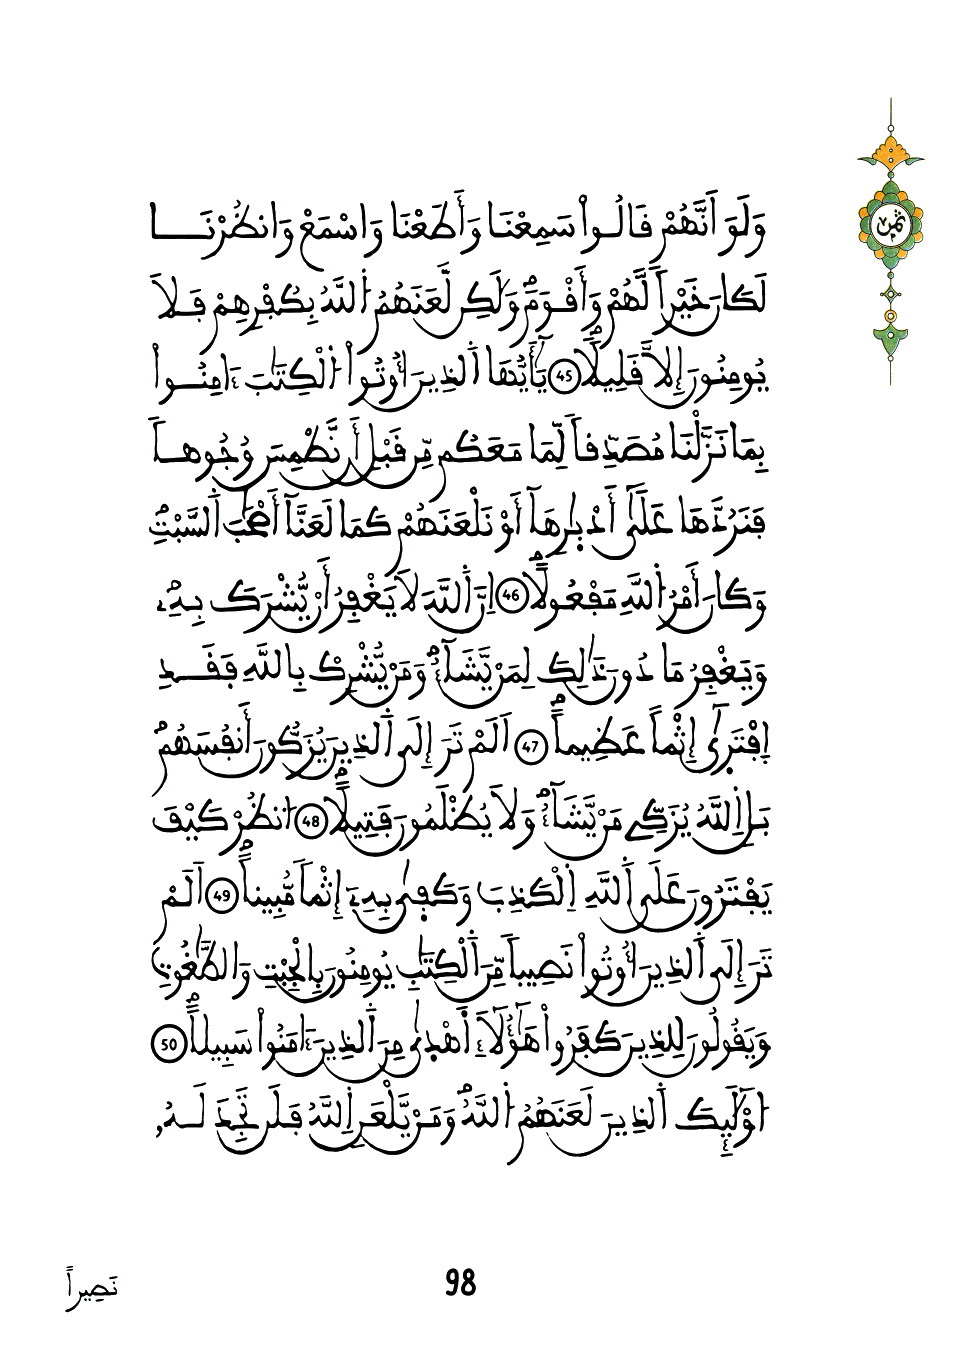 ثمن
وَلَوَ اَنَّهُمْ قَالُواْ سَمِعْنَا وَأَطَعْنَا وَاسْمَعْ وَانظُرْنَا
لَكَانَ خَيْراٗ لَّهُمْ وَأَقْوَمَۖ وَلَٰكِن لَّعَنَهُمُ اُللَّهُ بِكُفْرِهِمْ فَلَا
يُومِنُونَ إِلَّا قَلِيلاٗۖ 45 يَٰٓأَيُّهَا اَلذِينَ أُوتُواْ اُلْكِتَٰبَ ءَامِنُواْ
بِمَا نَزَّلْنَا مُصَدِّقاٗ لِّمَا مَعَكُم مِّن قَبْلِ أَن نَّطْمِسَ وُجُوهاٗ
فَنَرُدَّهَا عَلَىٰٓ أَدْبٰ۪رِهَآ أَوْ نَلْعَنَهُمْ كَمَا لَعَنَّآ أَصْحَٰبَ اَلسَّبْتِۖ
وَكَانَ أَمْرُ اُللَّهِ مَفْعُولاًۖ 46 اِنَّ اَللَّهَ لَا يَغْفِرُ أَنْ يُّشْرَكَ بِهِۦۖ
وَيَغْفِرُ مَا دُونَ ذَٰلِكَ لِمَنْ يَّشَآءُۖ وَمَنْ يُّشْرِكْ بِاللَّهِ فَقَدِ
اِفْتَر۪ىٰٓ إِثْماً عَظِيماًۖ 47 اَلَمْ تَرَ إِلَى اَلذِينَ يُزَكُّونَ أَنفُسَهُمۖ
بَلِ اِللَّهُ يُزَكِّے مَنْ يَّشَآءُۖ وَلَا يُظْلَمُونَ فَتِيلاًۖ 48 اُنظُرْ كَيْفَ
يَفْتَرُونَ عَلَى اَللَّهِ اِلْكَذِبَ وَكَف۪ىٰ بِهِۦٓ إِثْماٗ مُّبِيناًۖ 49 اَلَمْ
تَرَ إِلَى اَلذِينَ أُوتُواْ نَصِيباٗ مِّنَ اَلْكِتَٰبِ يُومِنُونَ بِالْجِبْتِ وَالطَّٰغُوتِ
وَيَقُولُونَ لِلذِينَ كَفَرُواْ هَٰٓؤُلَآءِ اَهْد۪ىٰ مِنَ اَلذِينَ ءَامَنُواْ سَبِيلاًۖ 50
اُوْلَٰٓئِكَ اَلذِينَ لَعَنَهُمُ اُللَّهُۖ وَمَنْ يَّلْعَنِ اِللَّهُ فَلَن تَجِدَ لَهُۥ
98
نَصِيراً